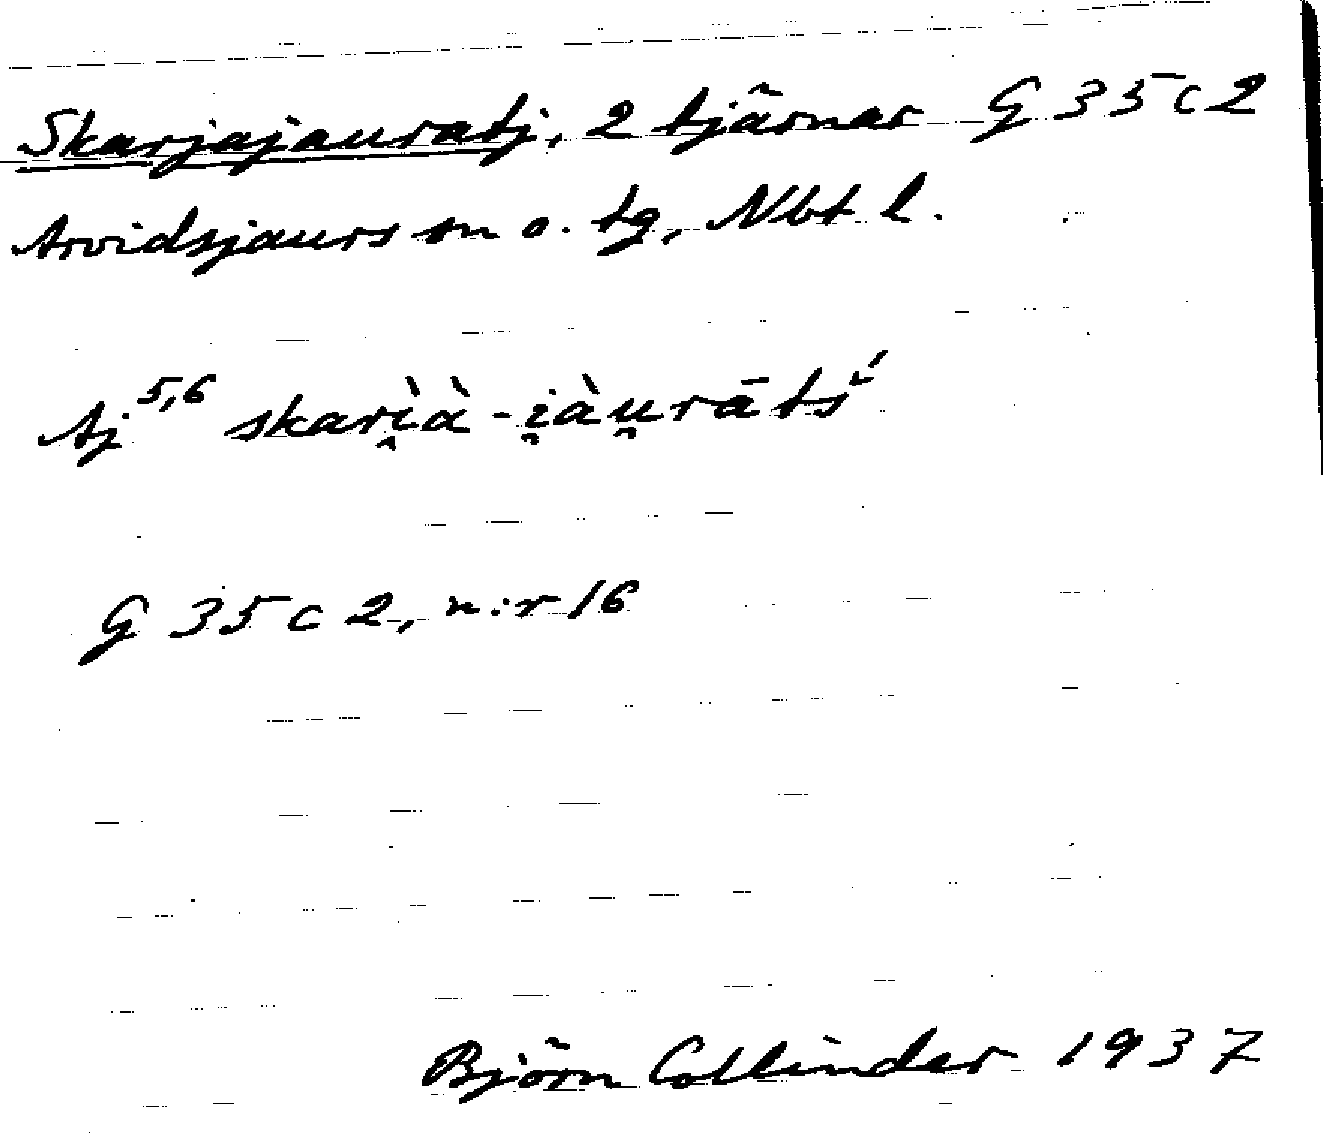 Skarjajauratj, 2 tjärnar G 35 c 2
Arvidsjaurs sn o. tg, Nbt l.
Aj 5,6 skarì̭à-i̯àu̯rātś
G 35 c 2, n:r 16
Björn Collinder 1937